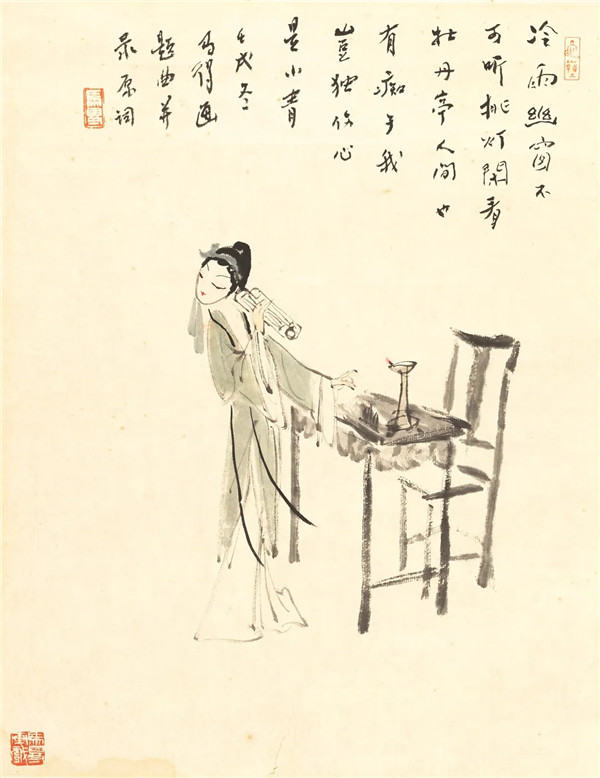 冷雨幽窗不
可听挑灯閑看
牡丹亭人间也
有痴于我
豈独伤心
是小青
壬戌冬
马得画
題曲并
录原词